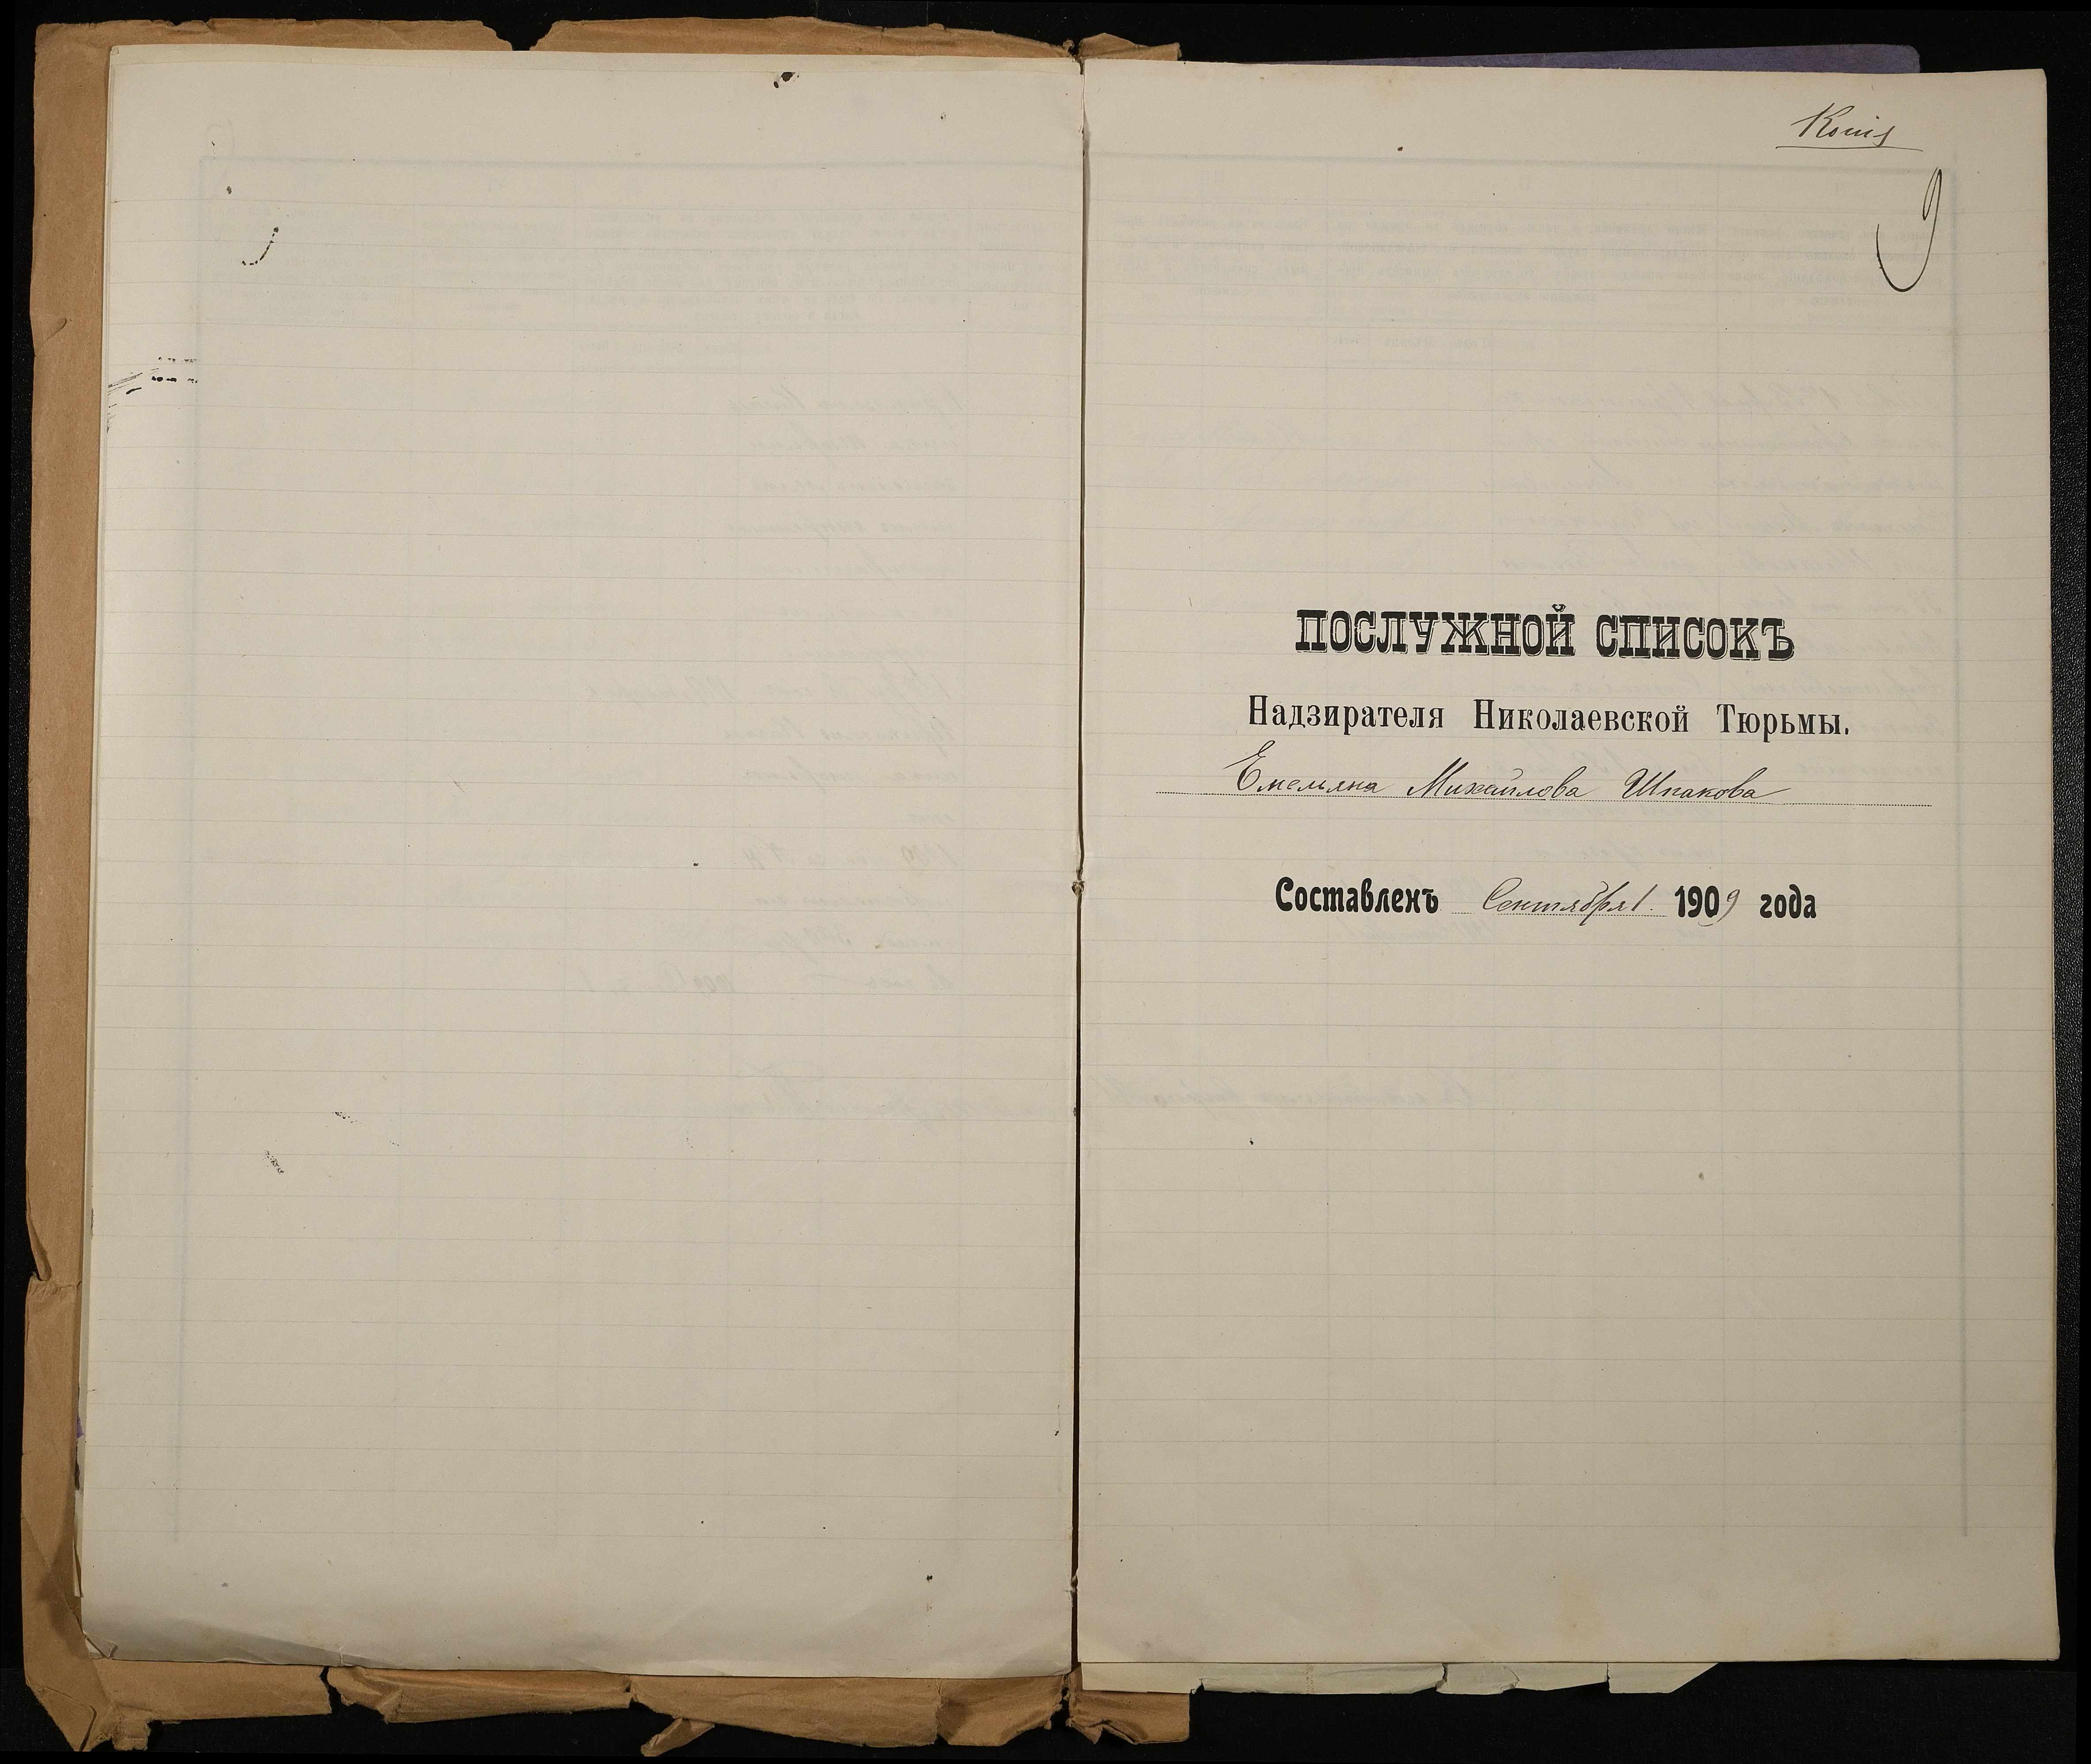 Копія
9
ПОСЛУЖНОЙ СПИСОКЪ
Надзирателя Николаевской Тюрьмы.
Емельяна Михайлова Шпакова
Составленъ Сентября 1. 1909 года